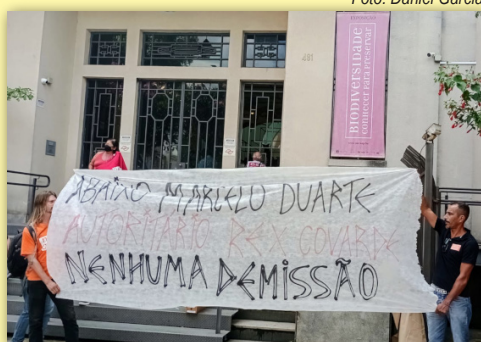 Foto: Daniel Garcia
481
BIODIVERSIDADE
CONHECER PARA PRESERVAR
ABAIXO MARCELO DUARTE
AUTORITÁRIO RÉU COVARDE
NENHUMA DEMISSÃO